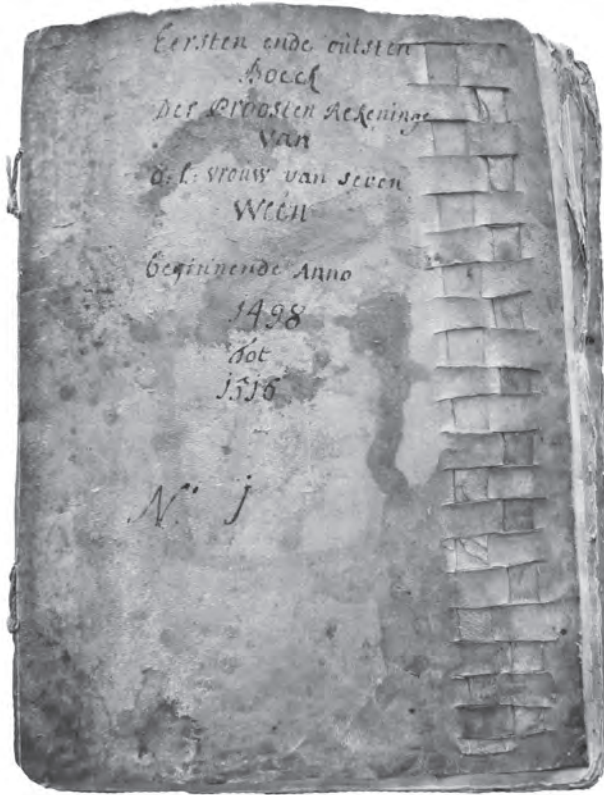 Eersten ende outsten
Boeck
Der Proosten Rekeninge
van
o: l: vrouw van seven
Ween
beginnende Anno
1498
Tot
1516
N.º 1